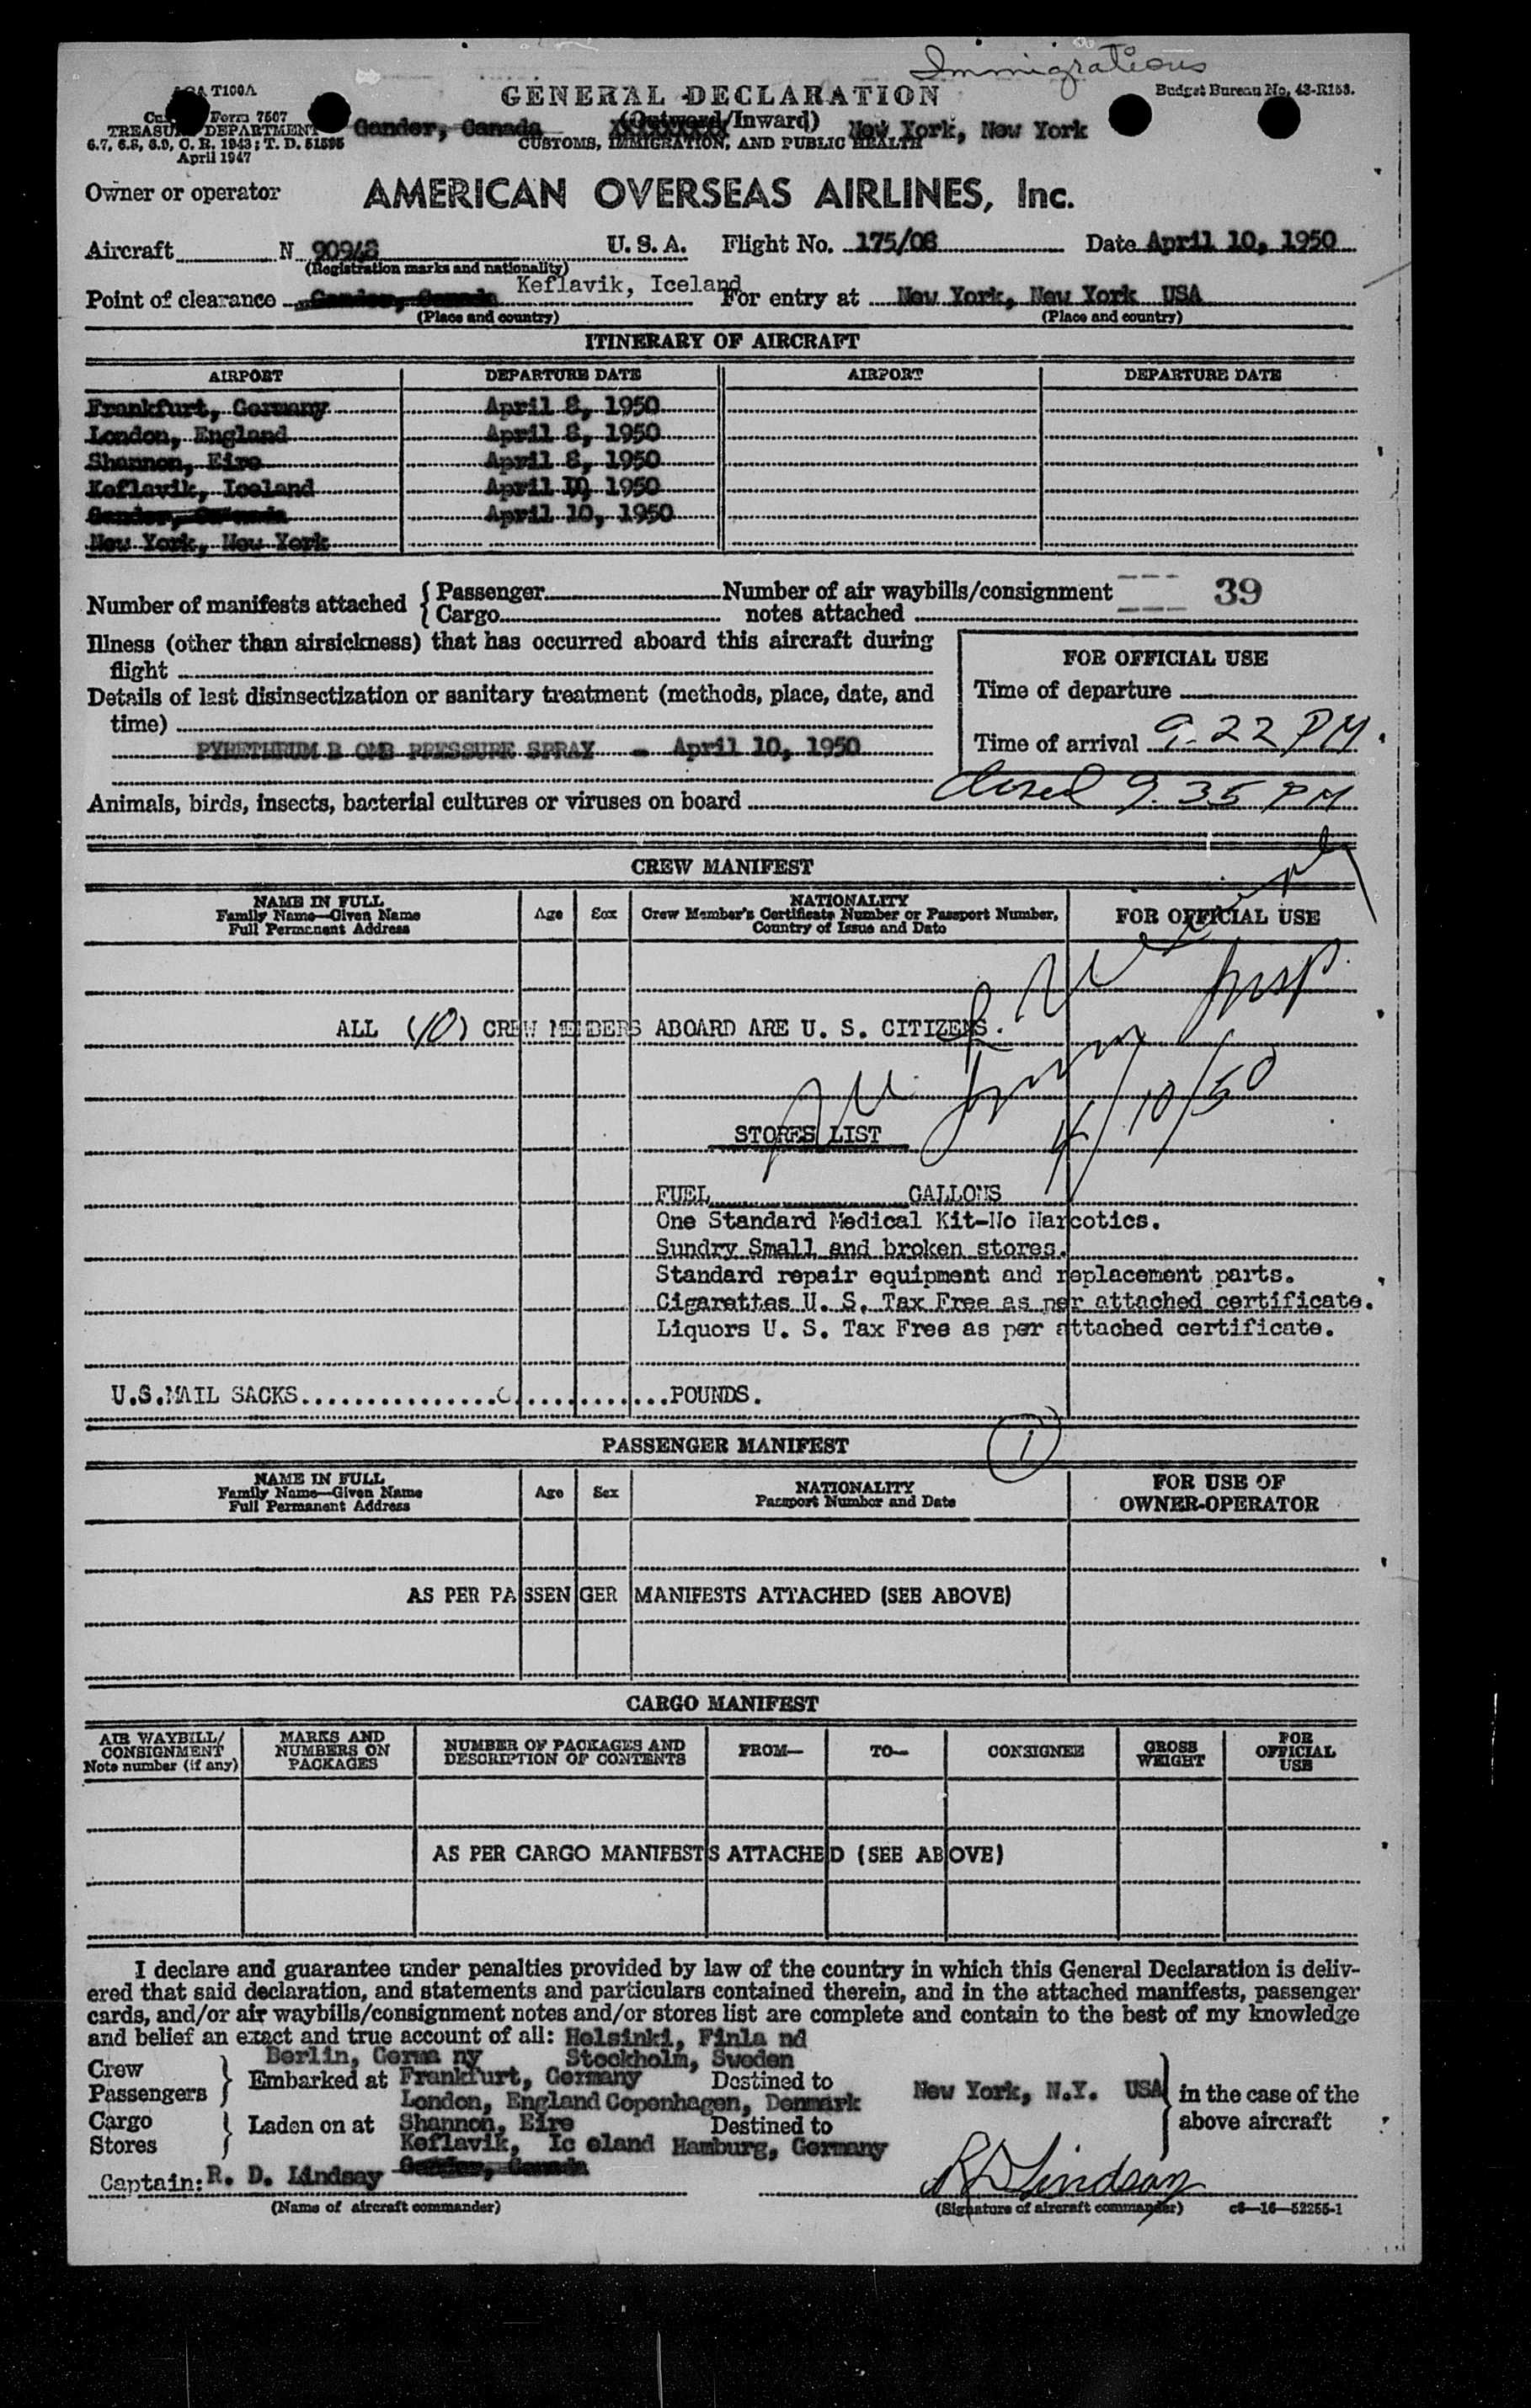 Immigrations
AOA T100A
GENERAL DECLARATION
Budget Bureau No. 43-R153.
Form 7507
(Outward/Inward)
TREASURY DEPARTMENT
Gander, Canada
New York, New York
6.7, 6.8, 6.9, C. R. 1943; T. D. 51595
CUSTOMS, IMMIGRATION, AND PUBLIC HEALTH
April 1947
Owner or operator AMERICAN OVERSEAS AIRLINES, Inc.
Aircraft N 90948 U. S. A. Flight No. 175/08 Date April 10, 1950
(Registration marks and nationality)
Point of clearance Gander, Canada Keflavik, Iceland For entry at New York, New York USA
(Place and country) (Place and country)
ITINERARY OF AIRCRAFT
AIRPORT DEPARTURE DATE AIRPORT DEPARTURE DATE
Frankfurt, Germany April 8, 1950
London, England April 8, 1950
Shannon, Eire April 8, 1950
Keflavik, Iceland April 10, 1950
Gander, Canada April 10, 1950
New York, New York
Number of manifests attached { Passenger Number of air waybills/consignment 39
Cargo notes attached
Illness (other than airsickness) that has occurred aboard this aircraft during
flight
FOR OFFICIAL USE
Details of last disinsectization or sanitary treatment (methods, place, date, and
Time of departure
time)
PYRETHRUM B OMB PRESSURE SPRAY - April 10, 1950
Time of arrival 9.22 PM
Closed 9.35 PM
Animals, birds, insects, bacterial cultures or viruses on board
CREW MANIFEST
NAME IN FULL
Family Name—Given Name
Full Permanent Address
Age Sex
NATIONALITY
Crew Member's Certificate Number or Passport Number,
Country of Issue and Date
FOR OFFICIAL USE
Insp.
ALL (10) CREW MEMBERS ABOARD ARE U. S. CITIZENS.
4/10/50
STORES LIST
FUEL GALLONS
One Standard Medical Kit-No Narcotics.
Sundry Small and broken stores.
Standard repair equipment and replacement parts.
Cigarettes U. S. Tax Free as per attached certificate.
Liquors U. S. Tax Free as per attached certificate.
U.S.MAIL SACKS POUNDS.
PASSENGER MANIFEST 1
NAME IN FULL
Family Name—Given Name
Full Permanent Address
Age Sex
NATIONALITY
Passport Number and Date
FOR USE OF
OWNER-OPERATOR
AS PER PASSENGER MANIFESTS ATTACHED (SEE ABOVE)
CARGO MANIFEST
AIR WAYBILL/
CONSIGNMENT
Note number (if any)
MARKS AND
NUMBERS ON
PACKAGES
NUMBER OF PACKAGES AND
DESCRIPTION OF CONTENTS
FROM— TO— CONSIGNEE
GROSS
WEIGHT
FOR
OFFICIAL
USE
AS PER CARGO MANIFESTS ATTACHED (SEE ABOVE)
I declare and guarantee under penalties provided by law of the country in which this General Declaration is deliv-
ered that said declaration, and statements and particulars contained therein, and in the attached manifests, passenger
cards, and/or air waybills/consignment notes and/or stores list are complete and contain to the best of my knowledge
and belief an exact and true account of all: Helsinki, Finla nd
Berlin, Germa ny Stockholm, Sweden
Crew
Passengers } Embarked at Frankfurt, Germany Destined to New York, N.Y. USA } in the case of the
London, England Copenhagen, Denmark
Cargo
Stores } Laden on at Shannon, Eire Destined to above aircraft
Keflavik, Ic eland Hamburg, Germany
Gander, Canada
Captain: R. D. Lindsay RD Lindsay
(Name of aircraft commander) (Signature of aircraft commander) c8—16—52255-1